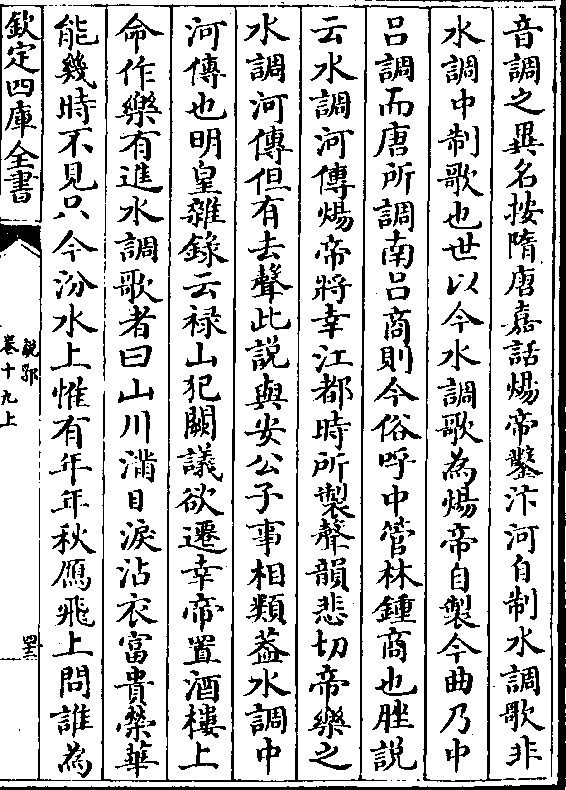 音調之異名按隋唐嘉話煬帝鑿汴河自制水調歌非
水調中制歌也世以今水調歌為煬帝自製今曲乃中
呂調而唐所調南呂商則今俗呼中管林鍾商也脞說
云水調河傳煬帝將幸江都時所製聲韻悲切帝樂之
水調河傳但有去聲此說與安公子事相類葢水調中
河傳也明皇雜錄云禄山犯闕議欲遷幸帝置酒樓上
命作樂有進水調歌者曰山川滿目淚沾衣富貴榮華
能幾時不見只今汾水上惟有年年秋鴈飛上問誰為
欽定四庫全書
說郛
卷十九上